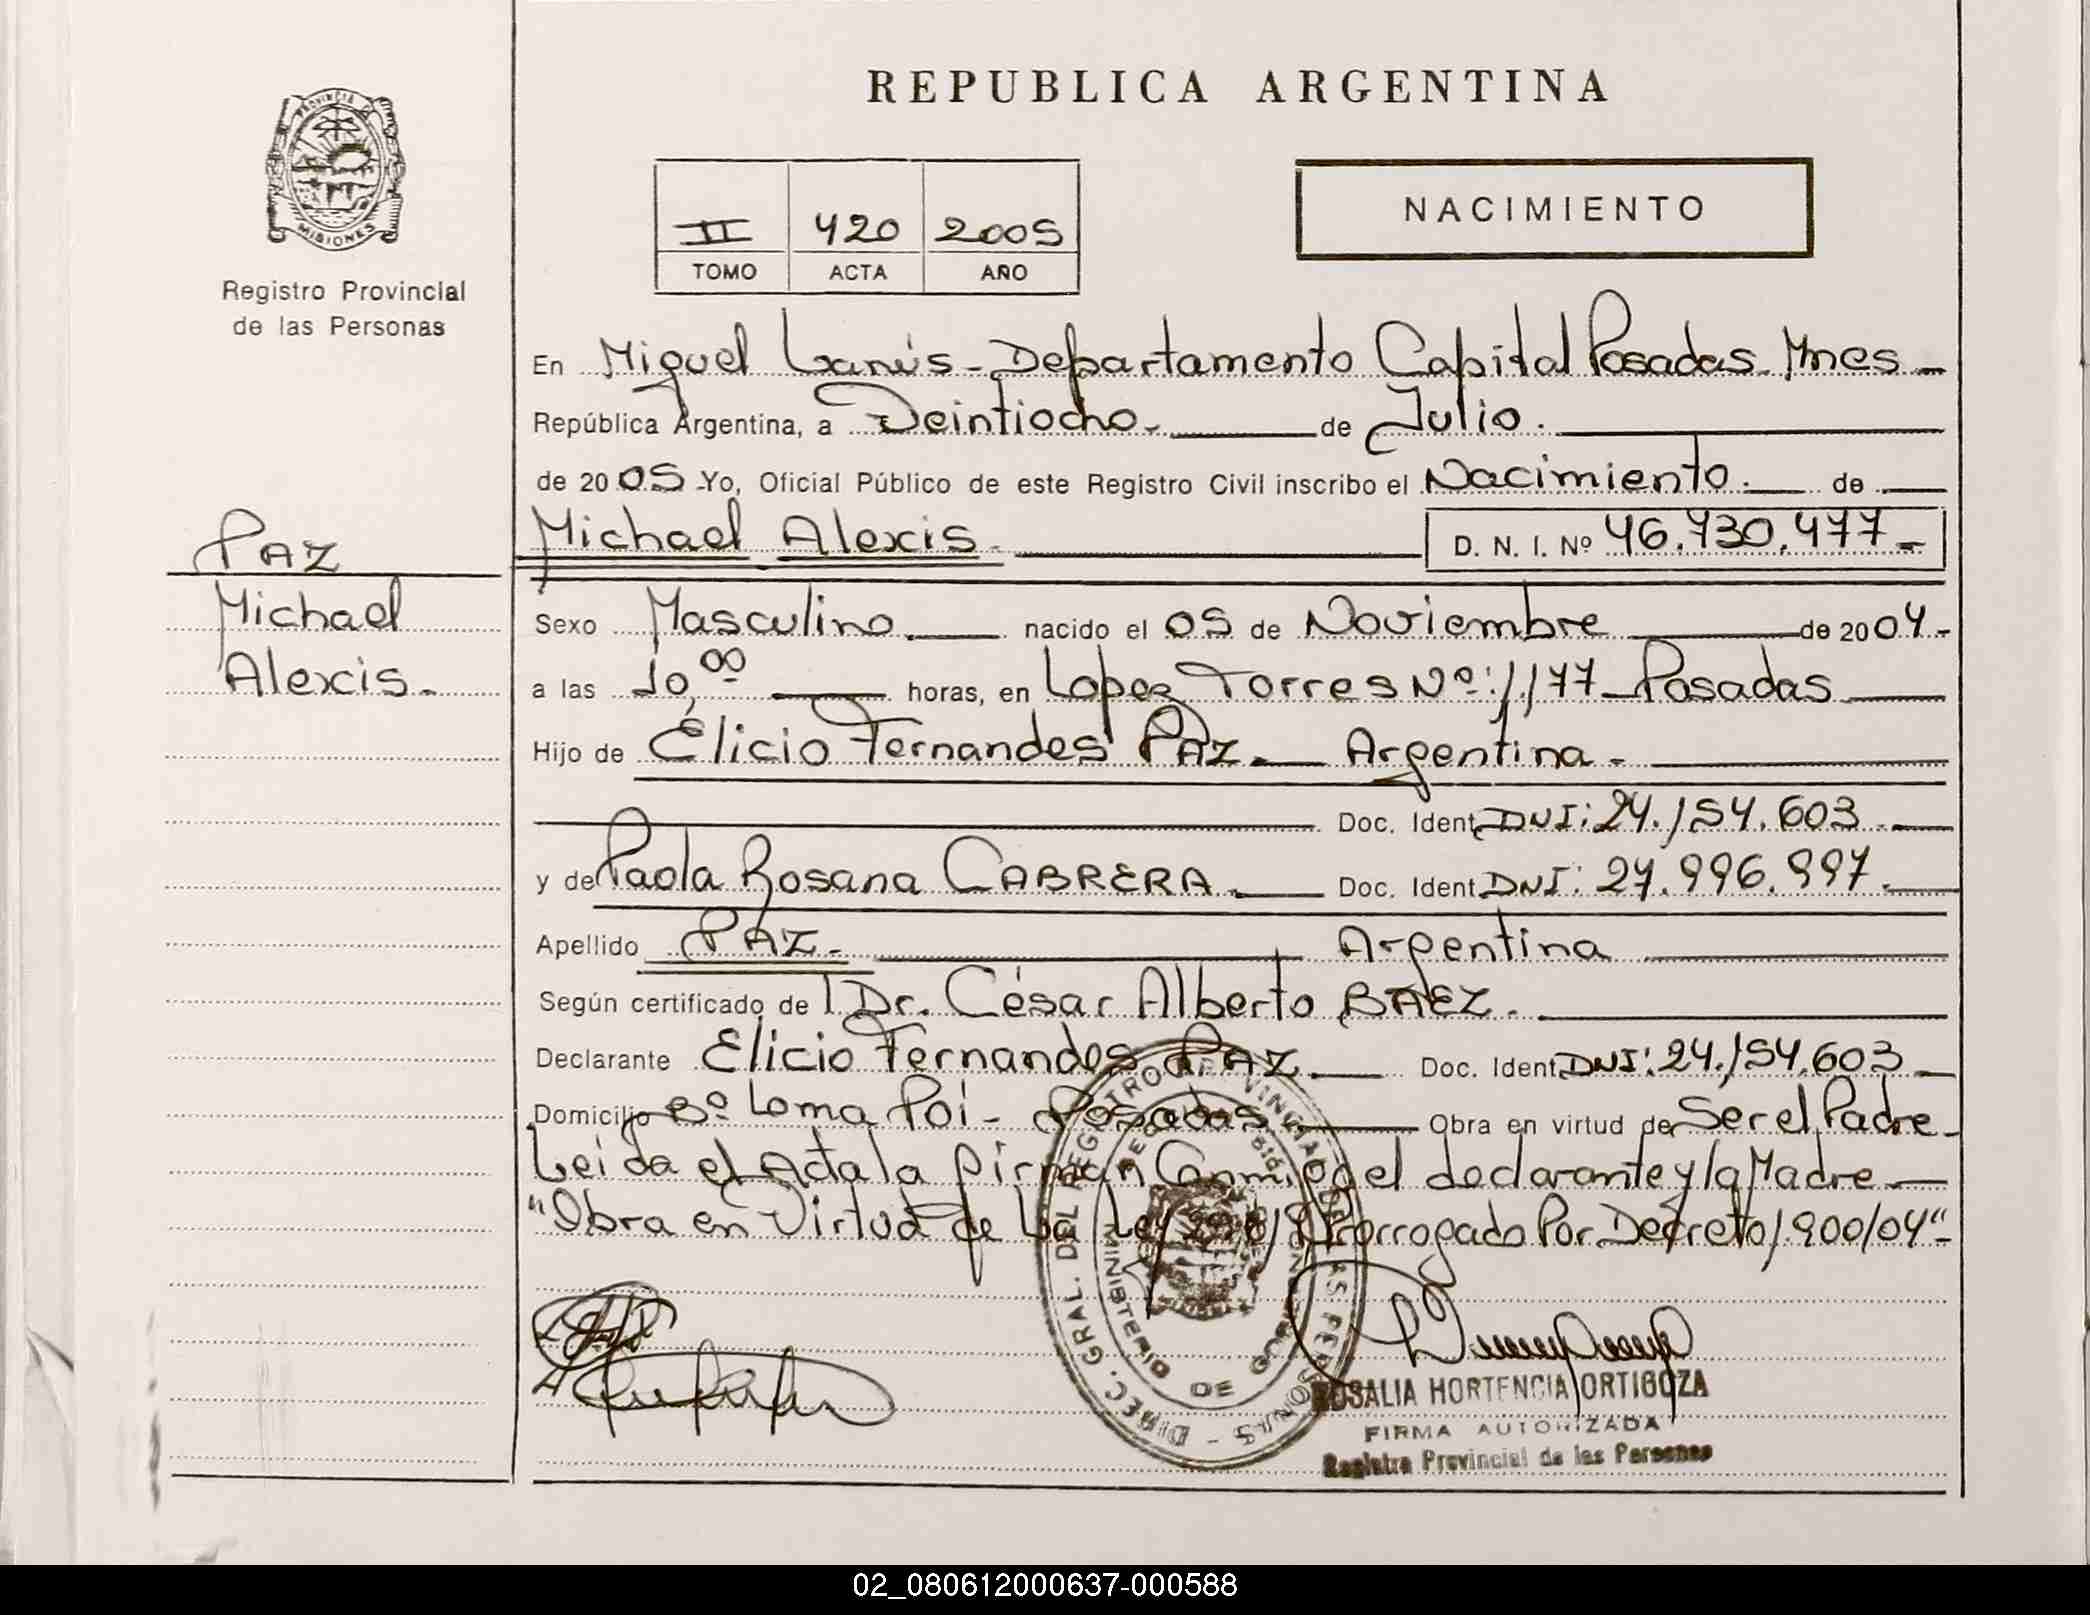 REPUBLICA ARGENTINA
PROVINCIA DE
MISIONES
Registro Provincial
de las Personas
II 420 2005
TOMO ACTA AÑO
NACIMIENTO
En Miguel Lanús - Departamento Capital Posadas Mnes -
República Argentina, a Veintiocho. de Julio.
de 20 05 Yo, Oficial Público de este Registro Civil inscribo el Nacimiento. de
Michael Alexis. D. N. I. Nº 46.730.477-
PAZ
Michael
Alexis.
Sexo Masculino nacido el 05 de Noviembre de 20 04.-
a las 10,00 horas, en Lopez Torres Nº: 1177 Posadas
Hijo de Elicio Fernandes PAZ. Argentina.
Doc. Ident. DNI: 24.154.603
y de Paola Rosana CABRERA. Doc. Ident. DNI: 27.996.997.
Apellido PAZ. Argentina
Según certificado de Dr. César Alberto BAEZ.
Declarante Elicio Fernandes PAZ. Doc. Ident. DNI: 24.154.603
Domicilio Bº Loma Poi - Posadas Obra en virtud de Ser el Padre
Leida el Acta la firman Conmigo el declarante y la Madre
"Obra en Virtud de La Ley Prorrogado Por Decreto 1.900/04"-
DIREC. GRAL. DEL REGISTRO PROVINCIAL DE LAS PERSONAS
MINISTERIO DE GOBIERNO
ROSALIA HORTENCIA ORTIGOZA
FIRMA AUTORIZADA
Registro Provincial de las Personas
02_080612000637-000588